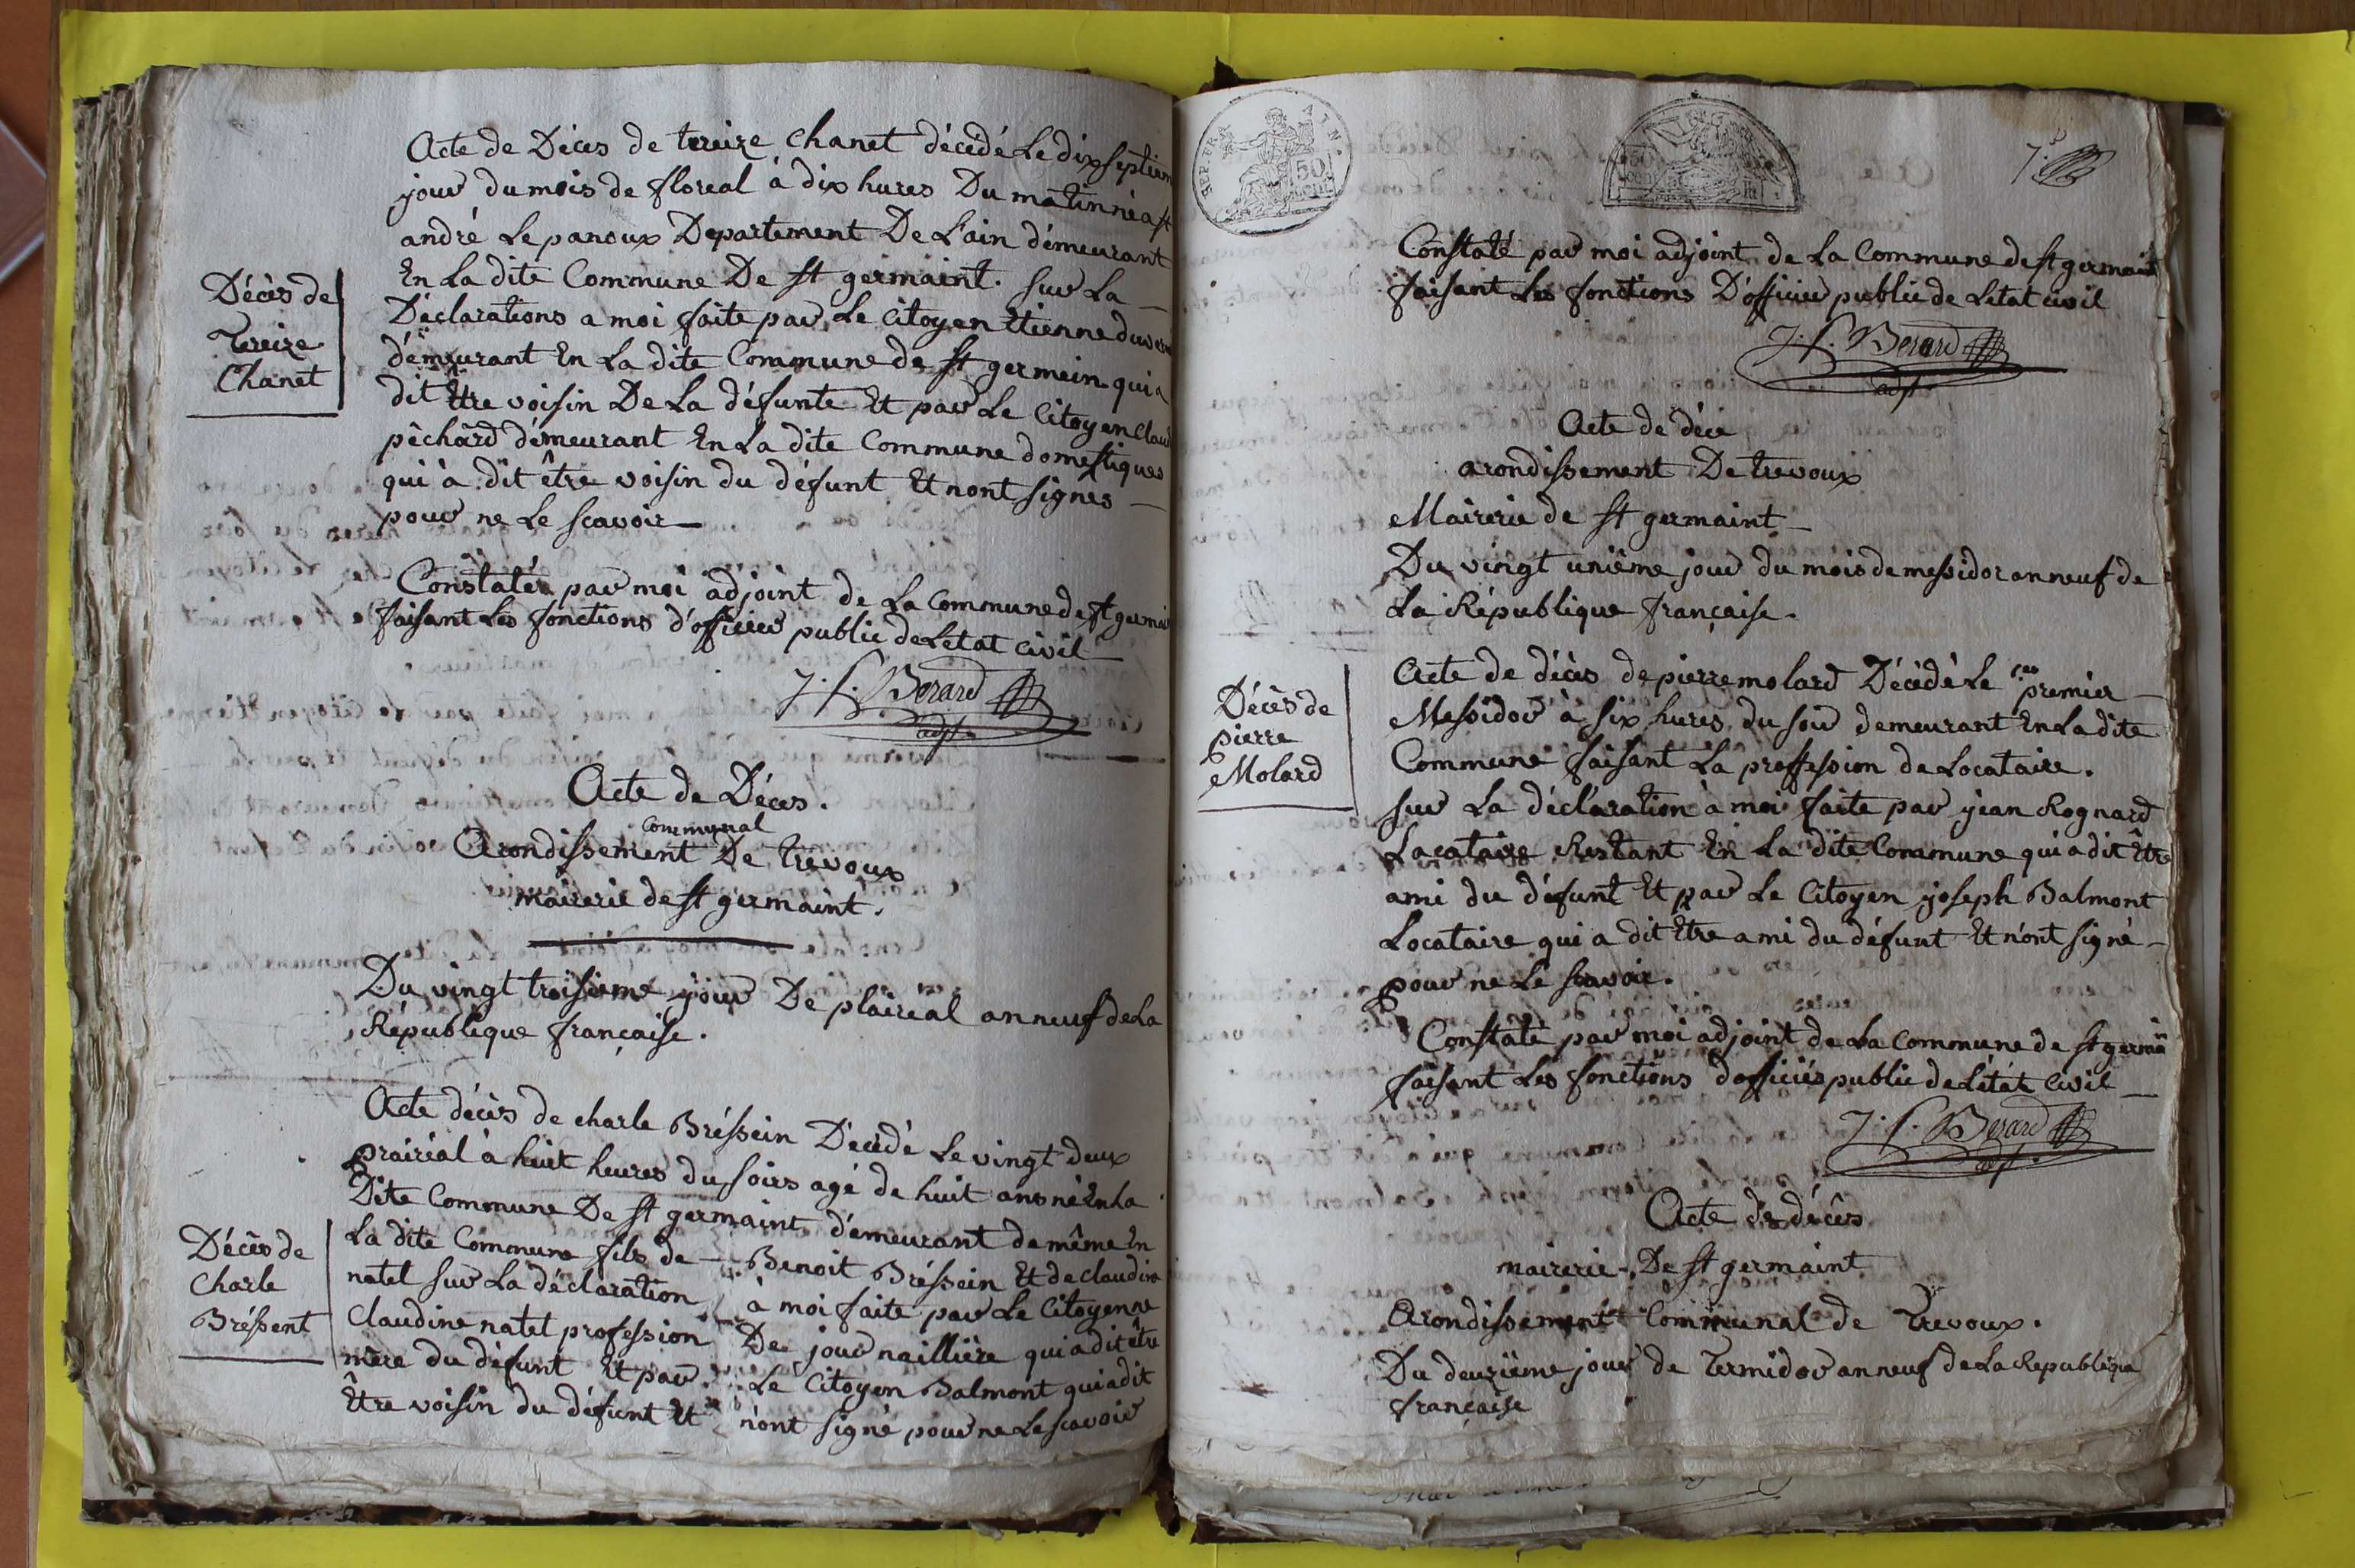 Acte de Déces de tereize chanet décédé Le dix septiem
jour du mois de floreal à dix hures Du matin né a st
andré Le panoux Departement De L'ain démeurant
En La dite Commune De st germaint. sur La
Déclarations a moi faite par Le citoyen Etienne
démeurant En La dite Commune de st germein qui a
dit Etre voisin De La défunte Et par Le Citoyen Clau
pêchard démeurant En La dite Commune domestiques
qui à dit être voisin du défunt Et nont signes
pour ne Le scavoir
Décès de
Tereize
Chanet
Constatér par moi adjoint de La Commune de st germai
faisant Les fonctions d'officier public de Letat Civil
J. f. Berard
adjt
Acte de Déces.
Communal
Arondissement De Trevoux
mairerie de st germaint.
Du vingt troisieme jour De plaireal an neuf de La
République française.
Acte décès de charle Bréssein Décédé Le vingt deux
prairéal à huit heures du soirs agé de huit ans né En La
Dite Commune De st germaint démeurant de même En
La dite Commune fils de Benoit Bréssein Et de claudine
natel sur La déclaration à moi faite par Le Citoyenne
Claudine natel profession De journaillière qui a dit être
mère du défunt Et par Le Citoyen Balmont qui a dit
Être voisin du défunt Et n'ont signé pour ne Le scavoir
Décès de
Charle
Bréssent
REP. FRA
50
cent.
50
cent.
7.
Constaté par moi adjoint de La Commune de st germaint
faisant Les fonctions D'officier public de Letat Civil
J. f. Berard
adjt
Acte de déce
arondissement De trevoux
Mairerie de st germaint
Du vingt unième jour du mois de messidor an neuf de
La République française.
Acte de décès de pierre molard Décédé Le premier
Messidor à six hures du soir demeurant En La dite
Commune faisant La proffession de Locataire.
sur La déclaration à moi faite par jean Rognard
Locataire Restant En La dite Commune qui a dit Etre
ami du défunt Et par Le Citoyen joseph Balmont
Locataire qui a dit Etre ami du défunt Et n'ont signé
pour ne Le scavoir.
Décès de
pierre
Molard
Constaté par moi adjoint de La Commune de st germa
faisant Les fonctions d'officiér public de L'état Civil
J. f. Berard
adjt
Acte de décès
mairerie De st germaint
Arondissement Communal de Trevoux.
Du deuzième jour de Termidor an neuf de La Republique
française